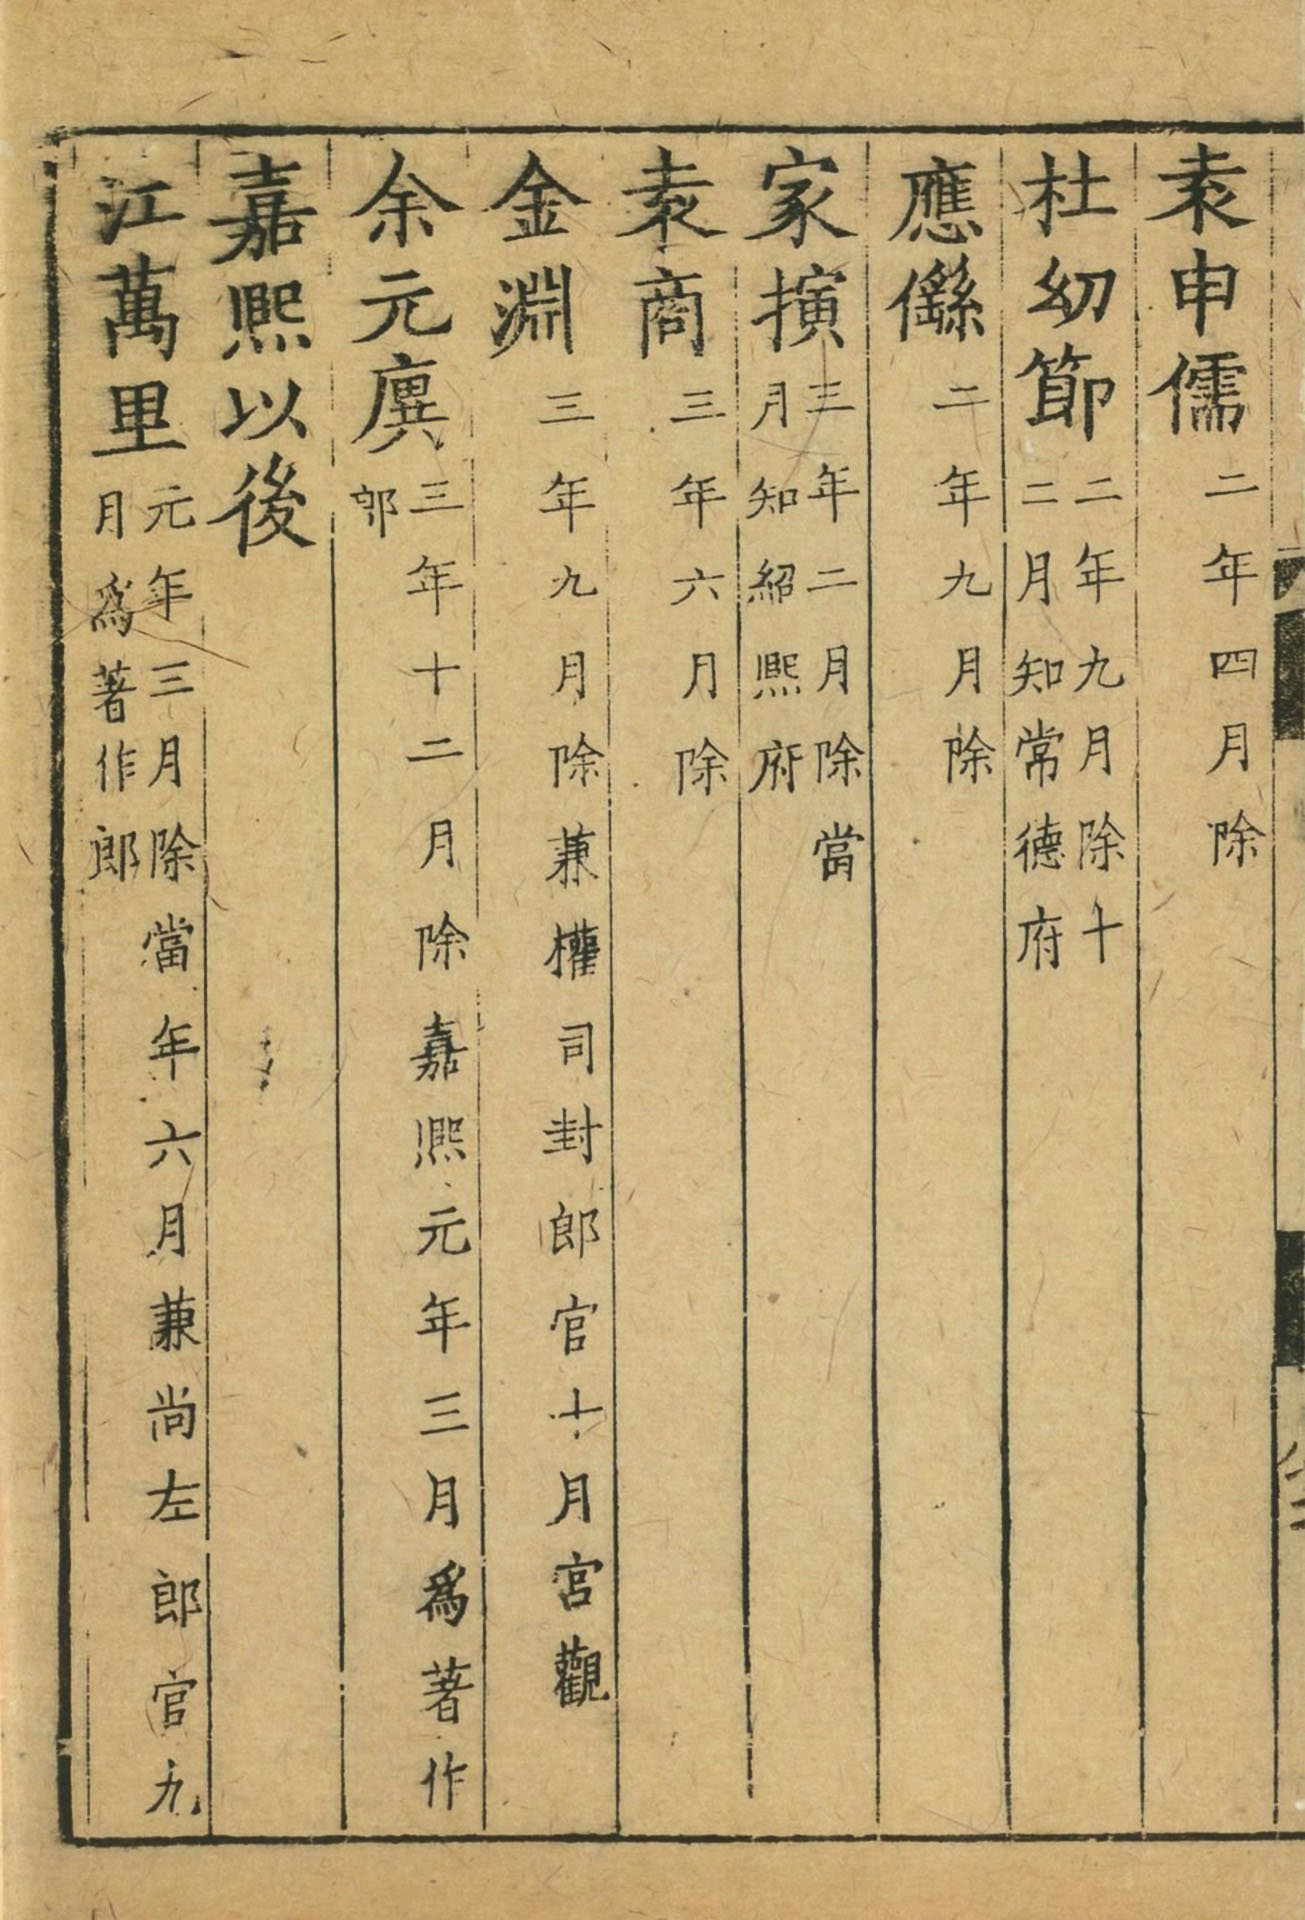 袁申儒二年四月除
杜幼節二年九月除十
二月知常德府
應㒡二年九月除
家㨪三年二月除當
月知紹熙府
袁商三年六月除
金淵三年九月除兼權司封郎官十月宮觀
余元廙三年十二月除嘉熙元年三月爲著作
郎
嘉熙以後
江萬里元年三月除當年六月兼尚左郎官九
月爲著作郎